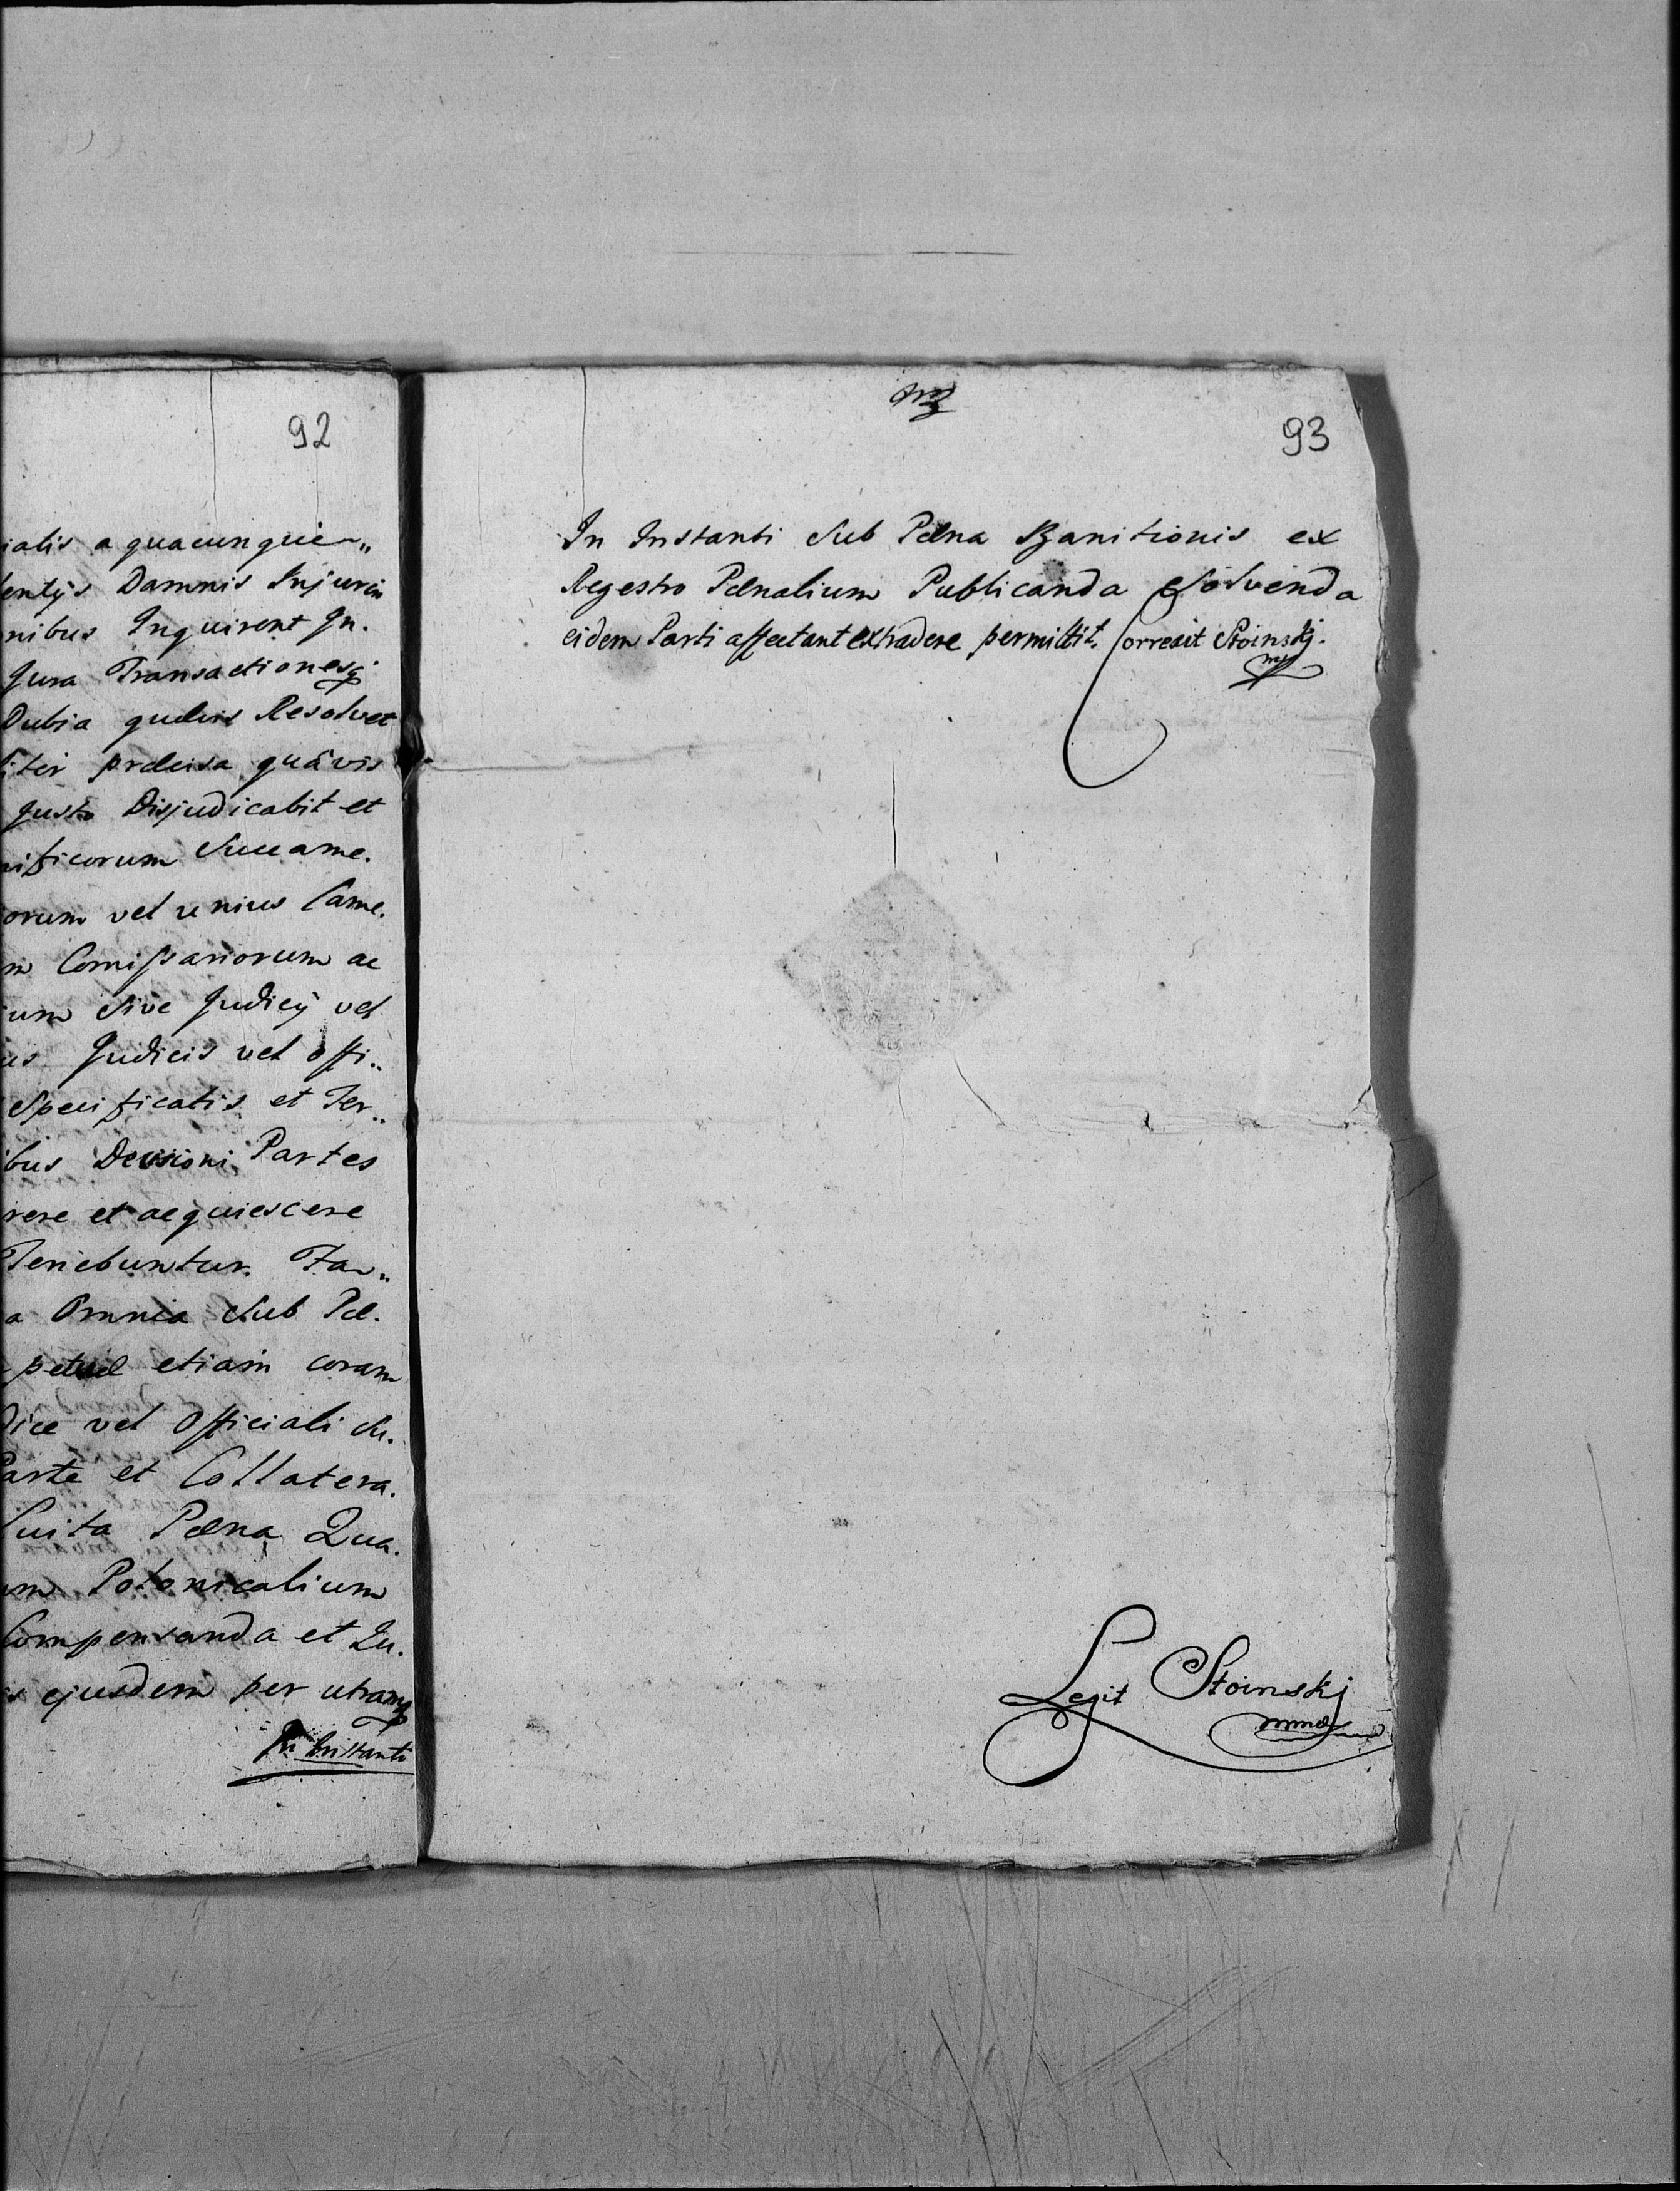 92
ialis a quacunque„
entijs Damnis Injurijs
nibus Inquirent In.
Jura Transactionesq
Dubia quævis Resolvet
liter præcisa quâvis
Justo Disjudicabit et
nificorum Succame.
orum vel unius Came.
m Comissariorum ac
um Sive Judicÿ vel
us Judicis vel offi„
Specificatis et Ter„
bus Decisioni Partes
rere et acquiescere
Tenebuntur. Ta„
a Omnia Sub Pæ.
petuæ etiam coram
dice vel Officiali Su.
Parte et Collatera.
Luita Pæna Qua.
um Polonicalium
Compensanda et In.
ejusdem per utramq
In Instanti
93
In Instanti Sub Pæna Banitionis ex
Regestro Pænalium Publicanda Solvenda
eidem Parti affectant extradere permittit. Correxit Stoinskj.
mp
Legit Stoinskj